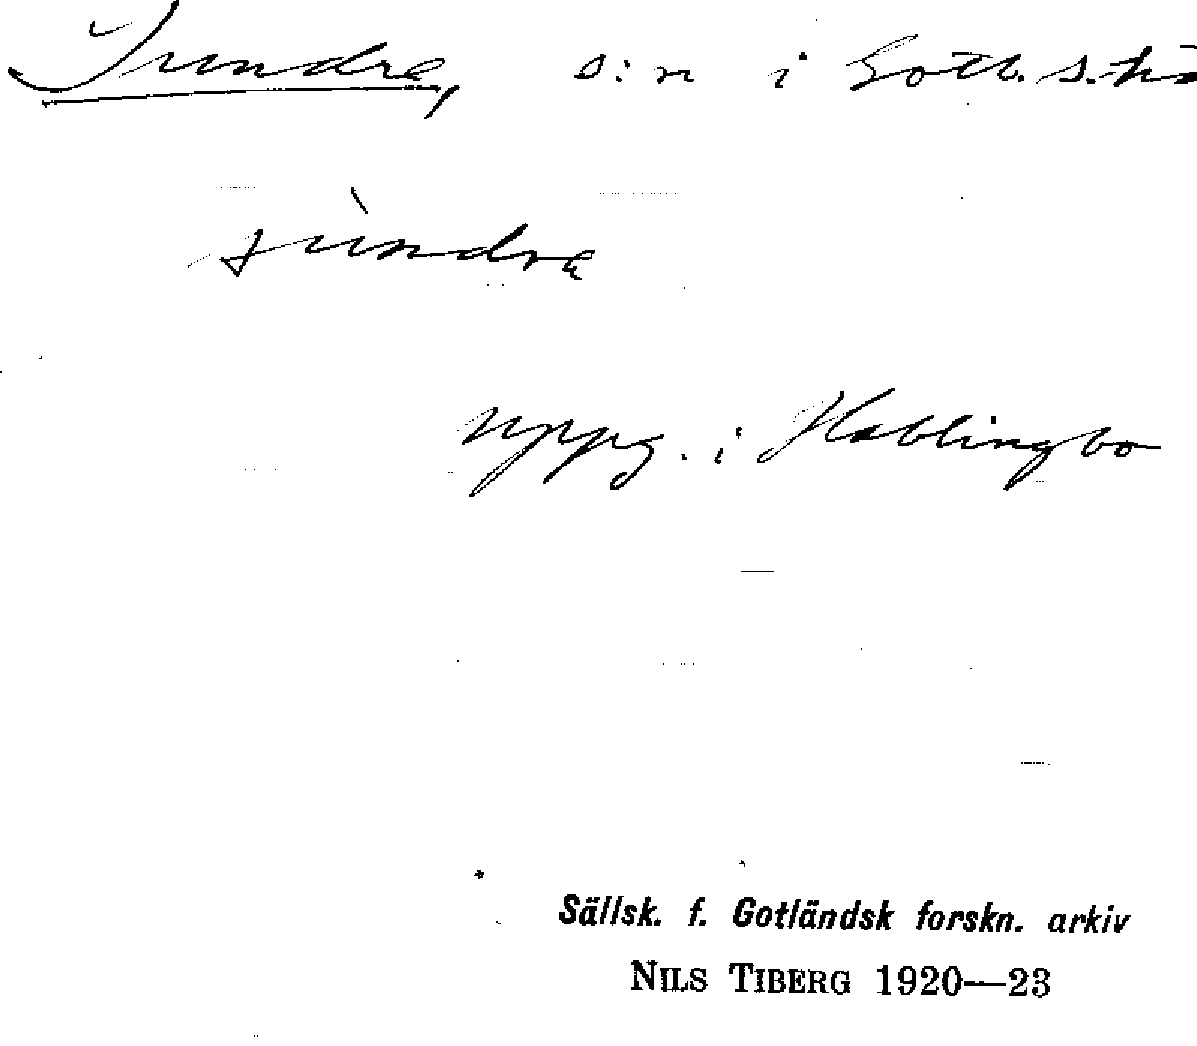 Sundre, s:n i Gotl. s. hä
sùndrɐ
uppg. i Hablingbo
Sällsk. f. Gotländsk forskn. arkiv
NILS TIBERG 1920—23